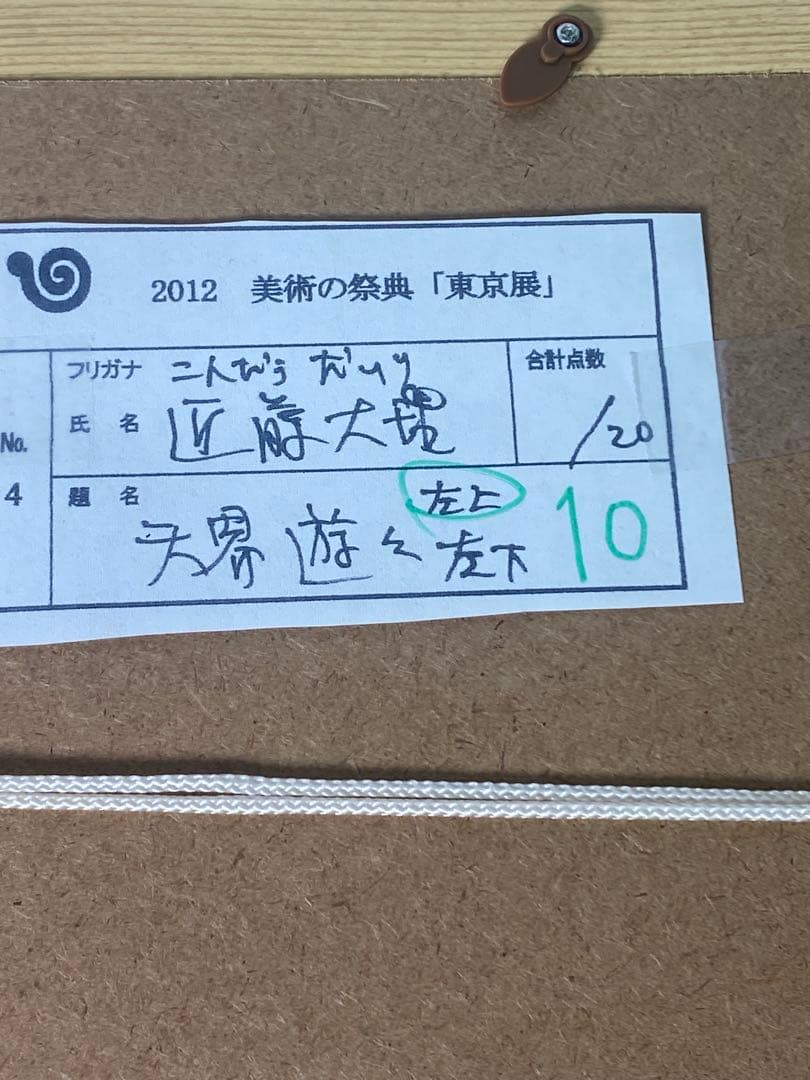 2012 美術の祭典「東京展」
フリガナ こんどう だいり
氏名 近藤大
合計点数
/20
No.
4
題名 天界遊々
左上
左下
10